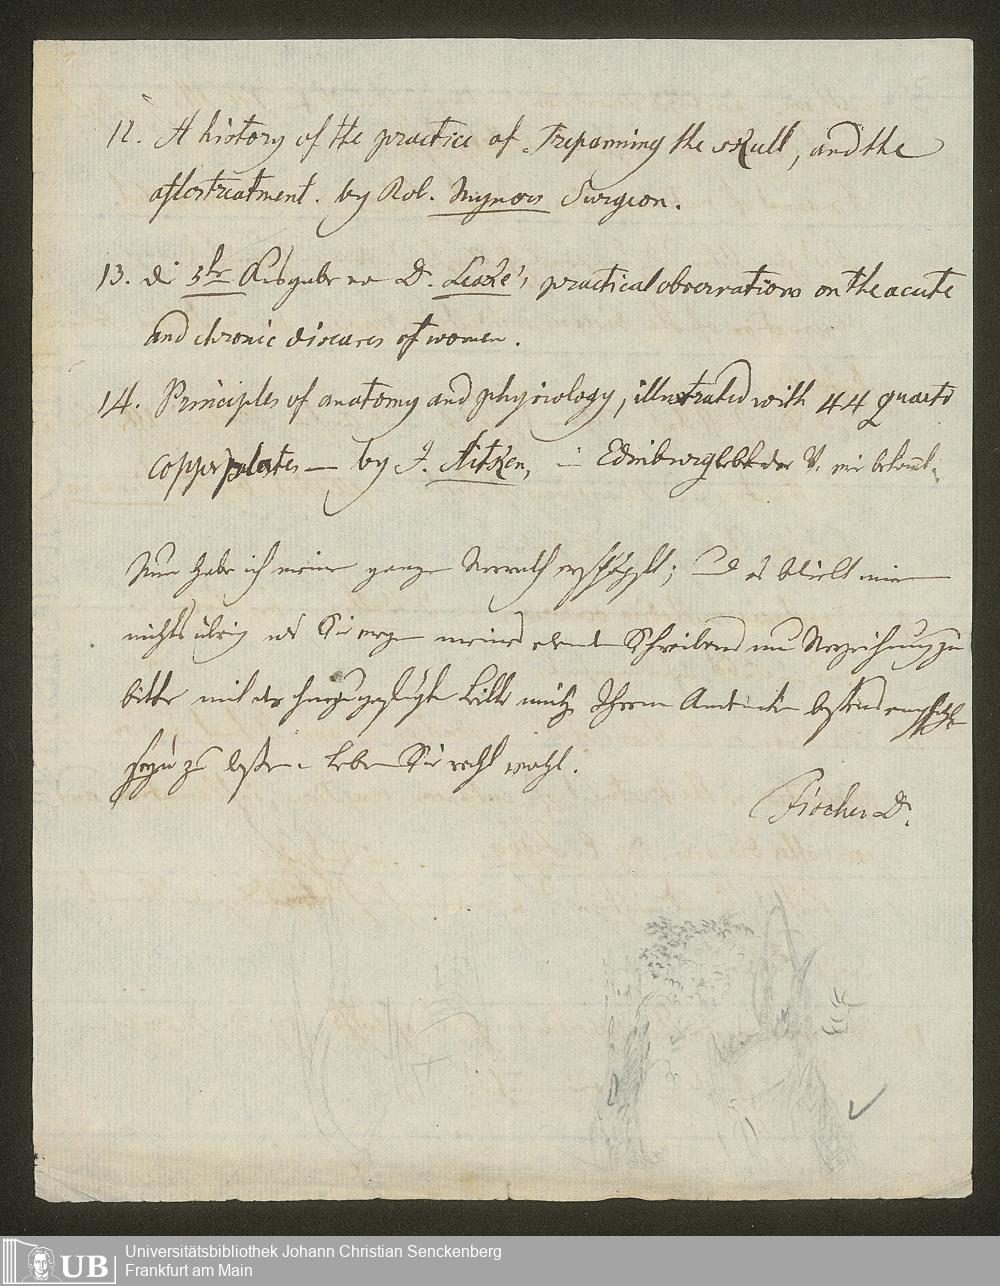 12. A history of the practice of Trepanning the skull, and the
aftertreatment. by Rob. Mynors Surgeon.
13. die 5te Ausgabe von D. Leake's practical observations on the acute
and chronic diseases of women.
14. Principles of anatomy and physiology, illustrated with 44 quarto
copperplates — by J. Aitken, in Edinburg lebt der V. mir bekannt.
Nun habe ich meinen ganzen Vorrath erschöpft; und es bleibt mir
nichts übrig als Sie wegen meines Schreibens um Verzeihung zu
bitten mit der hinzugefügten Bitte mich Ihrem Andenken bestens empfohlen
seyn zu lassen. Leben Sie recht wohl.
Fischer D.
UB
Universitätsbibliothek Johann Christian Senckenberg
Frankfurt am Main